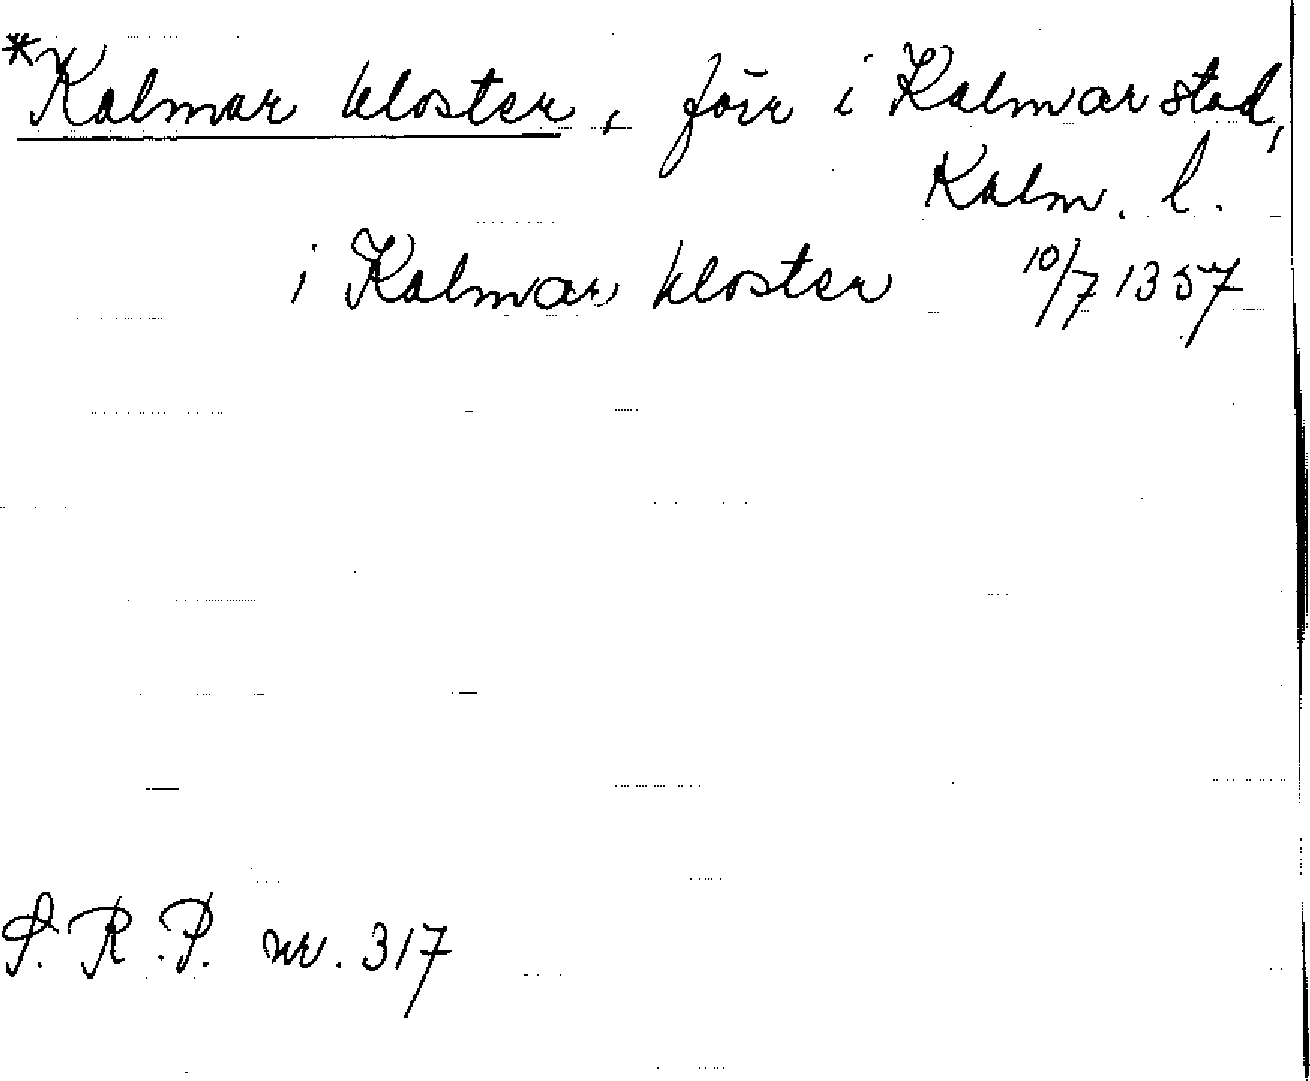 *Kalmar kloster, förr i Kalmar stad,
Kalm. l.
i Kalmar kloster 10/7 1357
S.R.P. nr. 317